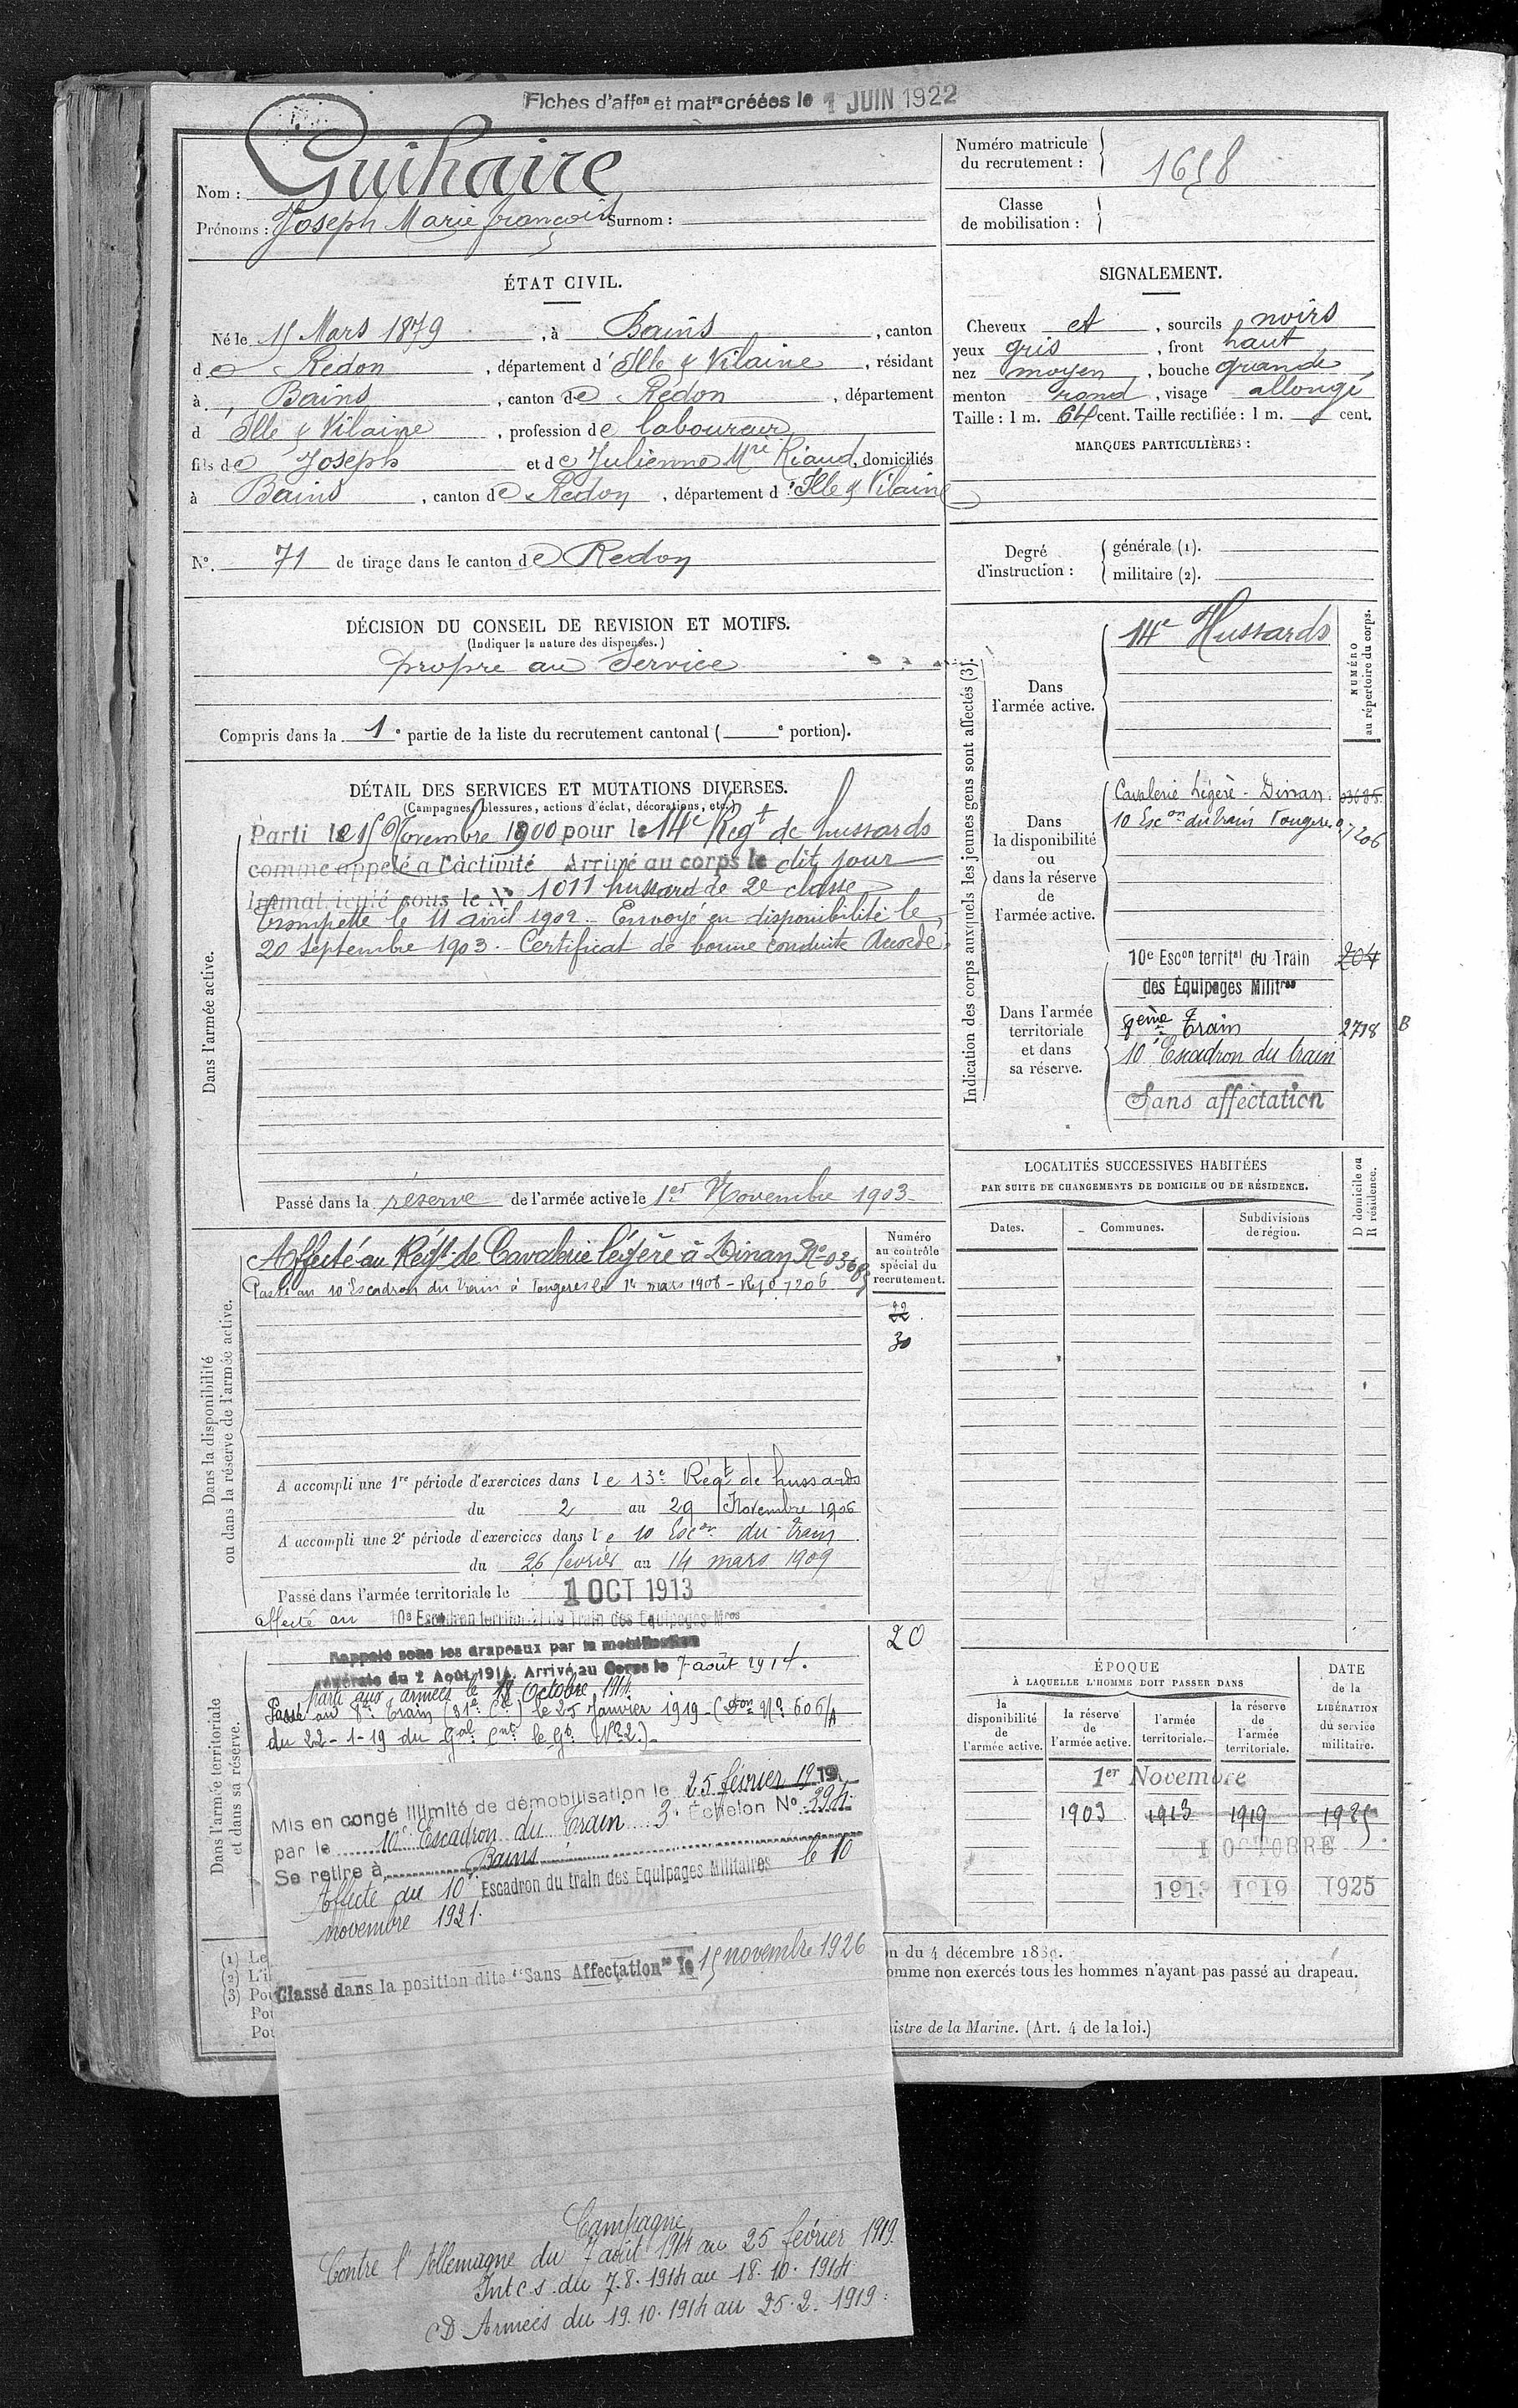 Fiches d'affon et matre créées le 1 JUIN 1922
Nom : Guihaire
Prénoms : Joseph Marie françois Surnom :
Numéro matricule du recrutement : 1658
Classe de mobilisation :
ÉTAT CIVIL.
Né le 15 Mars 1879, à Bains, canton
de Redon, département d'Ille & Vilaine, résidant
à Bains, canton de Redon, département
d Ille & Vilaine, profession de laboureur
fils de Joseph et de Julienne Mrie Riaud, domiciliés
à Bains, canton de Redon, département d'Ille & Vilaine
No. 71 de tirage dans le canton de Redon
SIGNALEMENT.
Cheveux et, sourcils noirs
yeux gris, front haut
nez moyen, bouche grande
menton rond, visage allongé
Taille : 1 m. 64 cent. Taille rectifiée : 1 m. cent.
MARQUES PARTICULIÈRES :
Degré d'instruction : générale (1).
militaire (2).
DÉCISION DU CONSEIL DE REVISION ET MOTIFS.
(Indiquer la nature des dispenses.)
propre au Service
Compris dans la 1e partie de la liste du recrutement cantonal ( e portion).
DÉTAIL DES SERVICES ET MUTATIONS DIVERSES.
(Campagnes, blessures, actions d'éclat, décorations, etc.)
Dans l'armée active.
Parti le 15 Novembre 1900 pour le 14e Regt de hussards
comme appelé à l'activité Arrivé au corps le dit jour
Immatriculé sous le No 1011 hussard de 2e classe
trompette le 11 avril 1902. Envoyé en disponibilité le
20 septembre 1903. Certificat de bonne conduite Accordé.
Passé dans la réserve de l'armée active le 1er Novembre 1903
Indication des corps auxquels les jeunes gens sont affectés (3).
NUMÉRO au répertoire du corps.
Dans l'armée active.
14e Hussards
Dans la disponibilité ou dans la réserve de l'armée active.
Cavalerie Légère - Dinan.
10 Escon du train Fougères 07206
Dans l'armée territoriale et dans sa réserve.
10e Escon territal du Train 204
des Équipages Militres
8ème Train 2718 B
10e Escadron du train
Sans affectation
Dans la disponibilité ou dans la réserve de l'armée active.
Numéro au contrôle spécial du recrutement.
Affecté au Régt. de Cavalerie légère à Dinan No 03685
Passé au 10 Escadron du train à Fougères le 14 mars 1908 - Rep 07206
22
30
A accompli une 1re période d'exercices dans le 13e Régt de hussards
du 2 au 29 Novembre 1906
A accompli une 2e période d'exercices dans le 10 Escon du train
du 26 février au 14 mars 1909
Passé dans l'armée territoriale le 1 OCT 1913
affecté au 10e Escadron territorial du Train des Equipages Mres
LOCALITÉS SUCCESSIVES HABITÉES
PAR SUITE DE CHANGEMENTS DE DOMICILE OU DE RÉSIDENCE.
D domicile ou R résidence.
Dates. Communes. Subdivisions de région.
Dans l'armée territoriale et dans sa réserve.
20
Rappelé sous les drapeaux par la mobilisation
générale du 2 Août 1914. Arrivé au Corps le 7 août 1914.
parti aux armées le 18 Octobre 1914
Passé au 8e Train (31e Cie) le 25 Janvier 1919 - (Don No 606/A
du 22-1-19 du Gal Cnt le Gt No 2.)-
Mis en congé illimité de démobilisation le 25 février 1919
par le 10e Escadron du Train 3e Échelon No 394
Se retire à Bains
Affecté au 10e Escadron du train des Equipages Militaires le 10
novembre 1921.
Classé dans la position dite "Sans Affectation" le 15 novembre 1926
Campagne
Contre l'Allemagne du 7 août 1914 au 25 février 1919.
Int c.s. du 7.8.1914 au 18.10.1914
CD Armées du 19.10.1914 au 25.2.1919.
ÉPOQUE
À LAQUELLE L'HOMME DOIT PASSER DANS
la disponibilité de l'armée active.
la réserve de l'armée active.
l'armée territoriale.
la réserve de l'armée territoriale.
DATE de la LIBÉRATION du service militaire.
1er Novembre
1903 1913 1919 1925
1 OCTOBRE
1913 1919 1925
(1) Le
(2) L'i
(3) Pou
Pou
Pou
on du 4 décembre 1889.
omme non exercés tous les hommes n'ayant pas passé au drapeau.
istre de la Marine. (Art. 4 de la loi.)